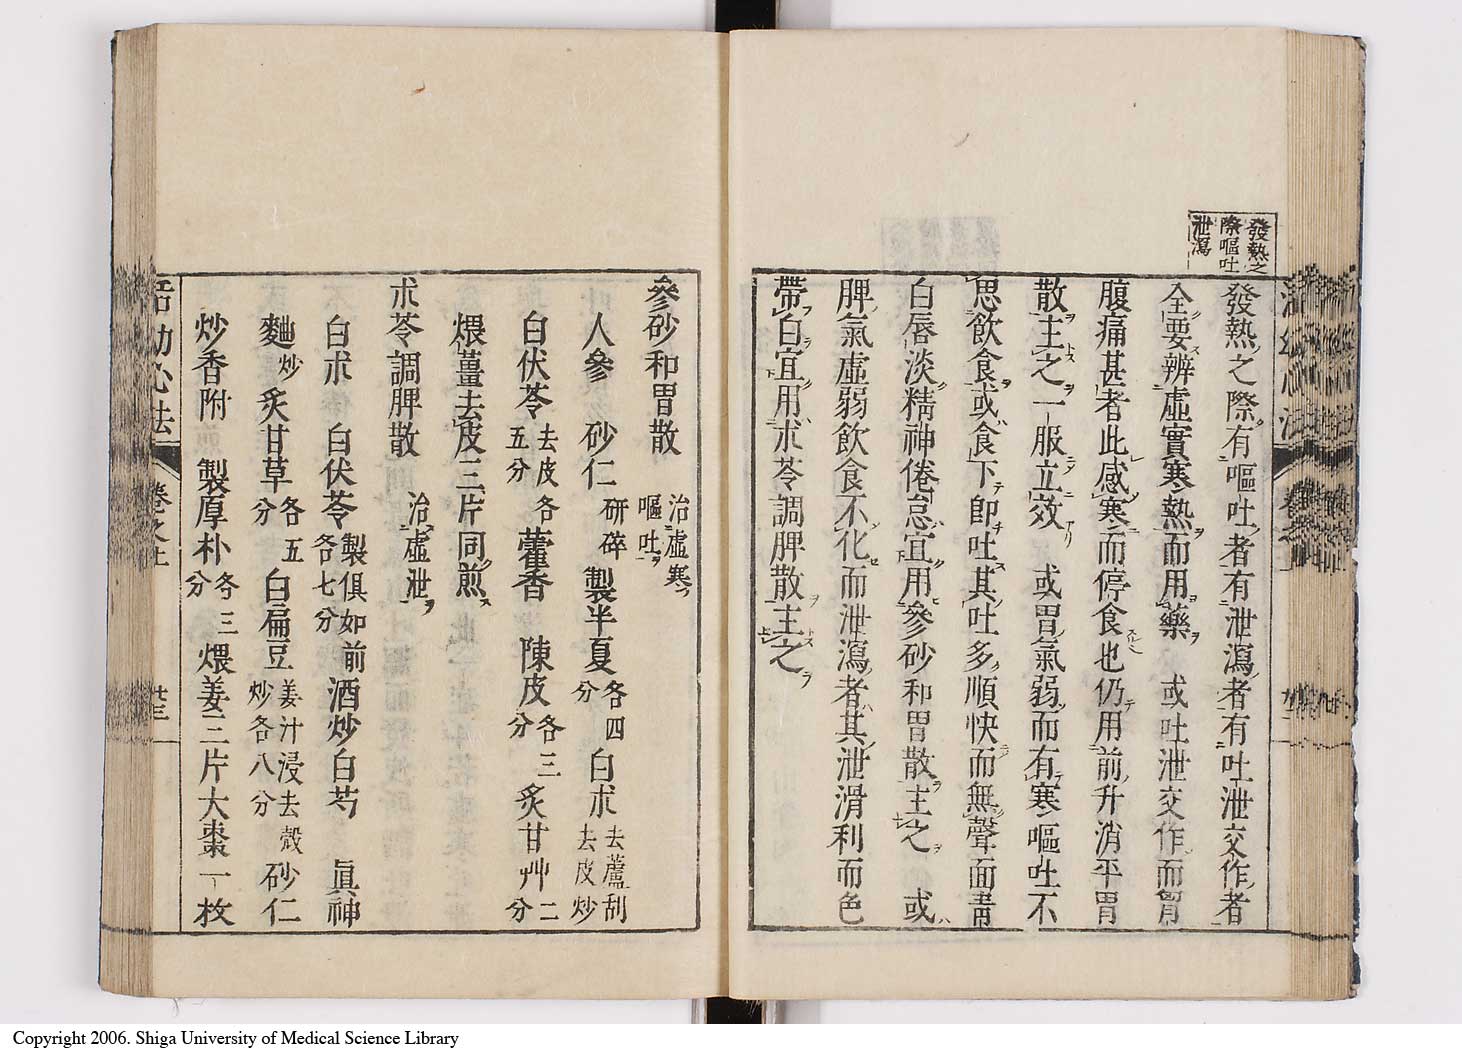 發熱之
際嘔吐
泄瀉
發熱之際有嘔吐者有泄瀉者有吐泄交作者
全要辨虛實寒熱而用藥 或吐泄交作而胃
腹痛甚者此感寒而停食也仍用前升消平胃
散主之一服立效 或胃氣弱而有寒嘔吐不
思飲食或食下即吐其吐多順快而無聲面青
白唇淡精神倦怠宜用參砂和胃散主之 或
脾氣虛弱飲食不化而泄瀉者其泄滑利而色
帶白宜用朮苓調脾散主之
參砂和胃散 治虛寒嘔吐
人參 砂仁研碎 製半夏各四分 白朮去蘆刮去皮炒
白伏苓去皮五分 各藿香 陳皮各三分 炙甘艸二分
煨薑去皮三片同煎
朮苓調脾散 治虛泄
白朮 白伏苓製俱如前各七分 酒炒白芍 眞神
麯炒 炙甘草各五分 白扁豆姜汁浸去殼炒各八分 砂仁
炒香附 製厚朴各三分 煨姜三片大棗一枚
活幼心法
卷之上
廿三
Copyright 2006. Shiga University of Medical Science Library